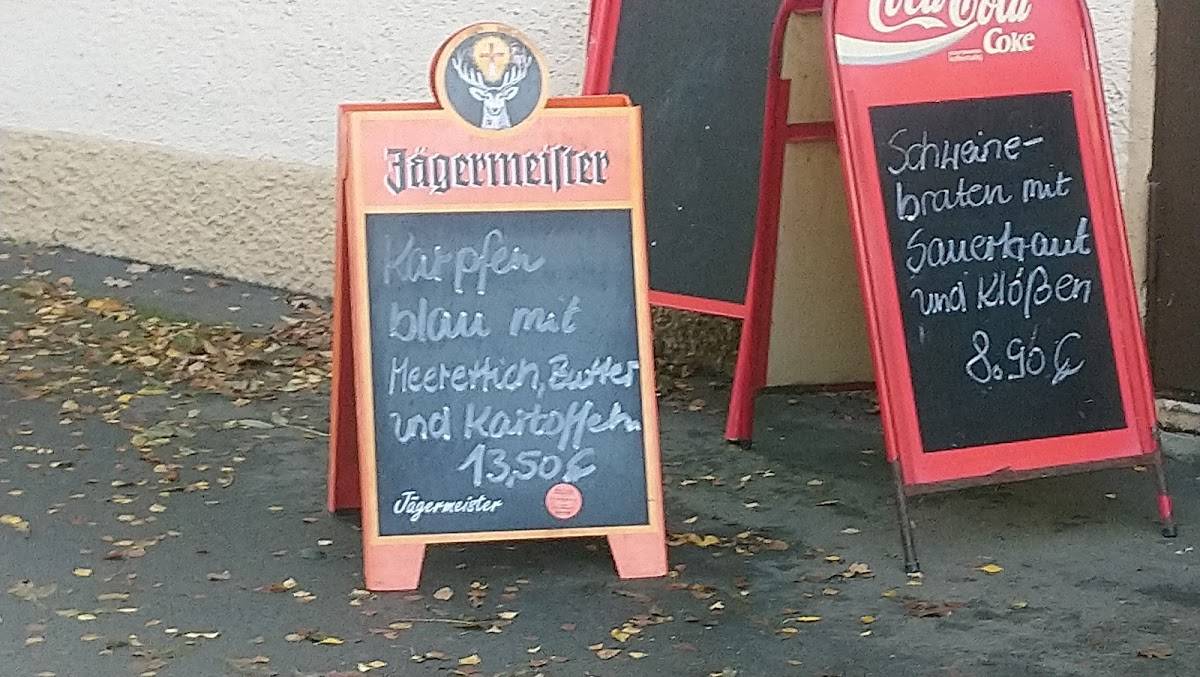 Jägermeiſter
Karpfen
blau mit
Meerettich, Butter
und Kartoffeln
13,50 €
Jägermeister
Coca-Cola
Coke
Schweine-
braten mit
Sauerkraut
und Klößen
8.90 €